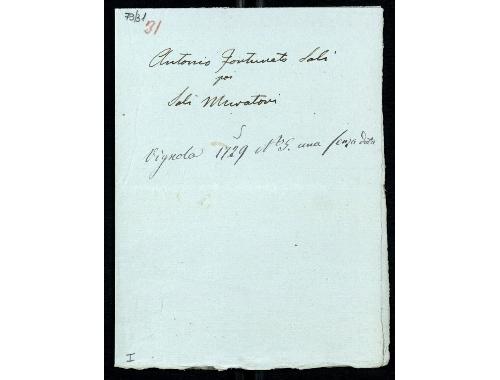 79/31
31
Antonio Fortunato Soli
poi
Soli Muratori
5
Vignola 1729 N.° 5. una senza data
I